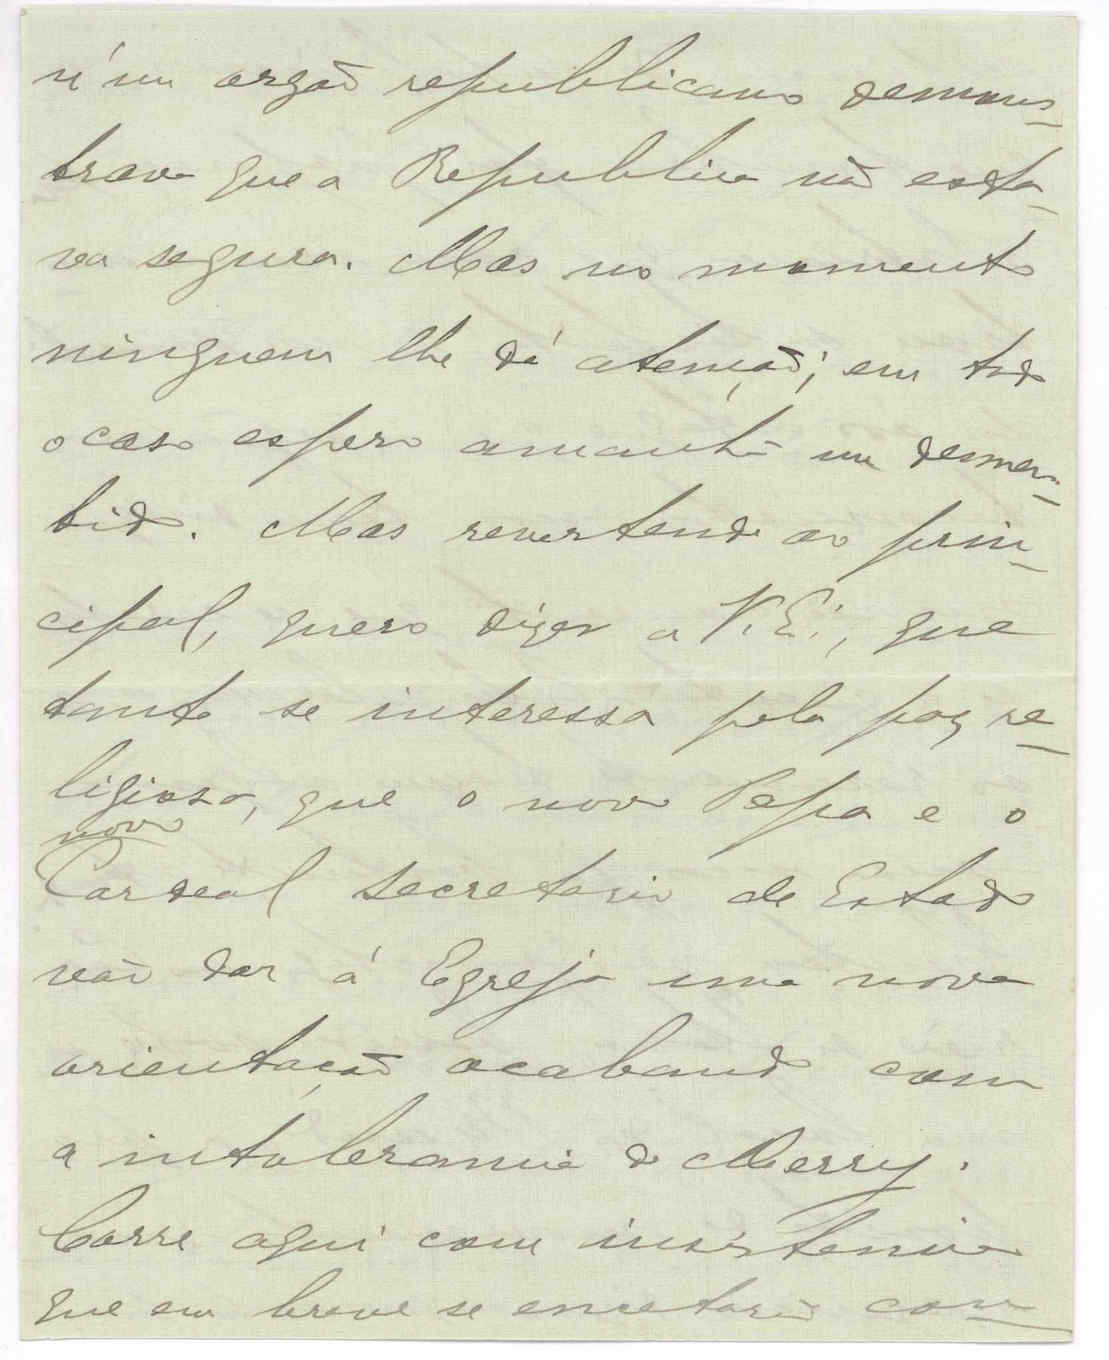 n'um orgão republicano demons-
trava que a Republica não esta-
va segura. Mas no momento
ninguem lhe dá atenção; em todo
o caso espero amanhã um desmen-
tido. Mas revertendo ao prin-
cipal, quero dizer a V. E.ª, que
tanto se interessa pela paz re-
ligiosa, que o novo Papa e o
novo
Cardeal secretario de Estado
vão dar á Egreja uma nova
orientação acabando com
a intolerancia do Merry.
Corre aqui com insistencia
que em breve se encetarão con-